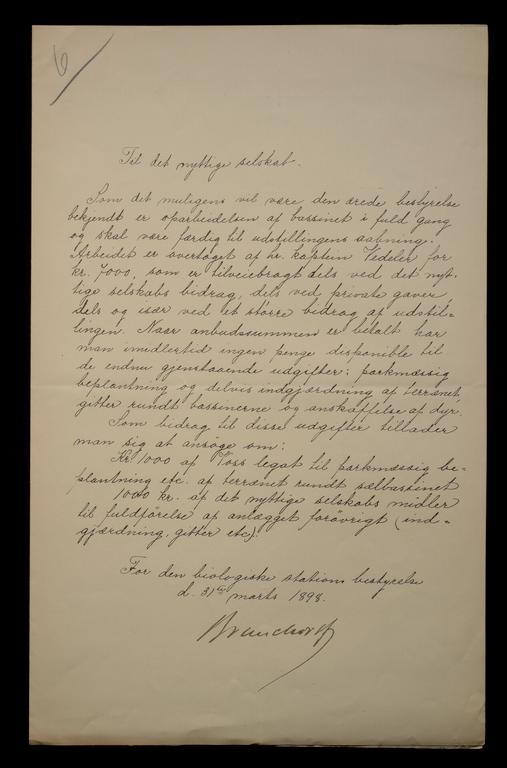 6
Til det nyttige selskab.
Som det muligens vil være den ærede bestyrelse
bekjendt er oparbeidelsen af bassinet i fuld gang
og skal være færdig til udstillingens aabning.
Arbeidet er overtaget af hr. kaptein Vedeler for
kr. 7000, som er tilveiebragt dels ved det nyt-
tige selskabs bidrag, dels ved private gaver,
dels og især ved et større bidrag af udstil-
lingen. Naar anbudssummen er betalt har
man imidlertid ingen penge disponible til
de endnu gjenstaaende udgifter: parkmæssig
beplantning og delvis indgjærdning af terrænet,
gitter rundt bassinerne og anskaffelse af dyr.
Som bidrag til disse udgifter tillader
man sig at ansøge om:
Kr. 1000 af Voss legat til parkmæssig be-
plantning etc. af terrænet rundt sælbassinet
1000 kr. af det nyttige selskabs midler
til fuldførelse af anlægget forøvrigt (ind-
gjærdning, gitter etc).
For den biologiske stations bestyrelse
d. 31te marts 1898.
Brunchorst